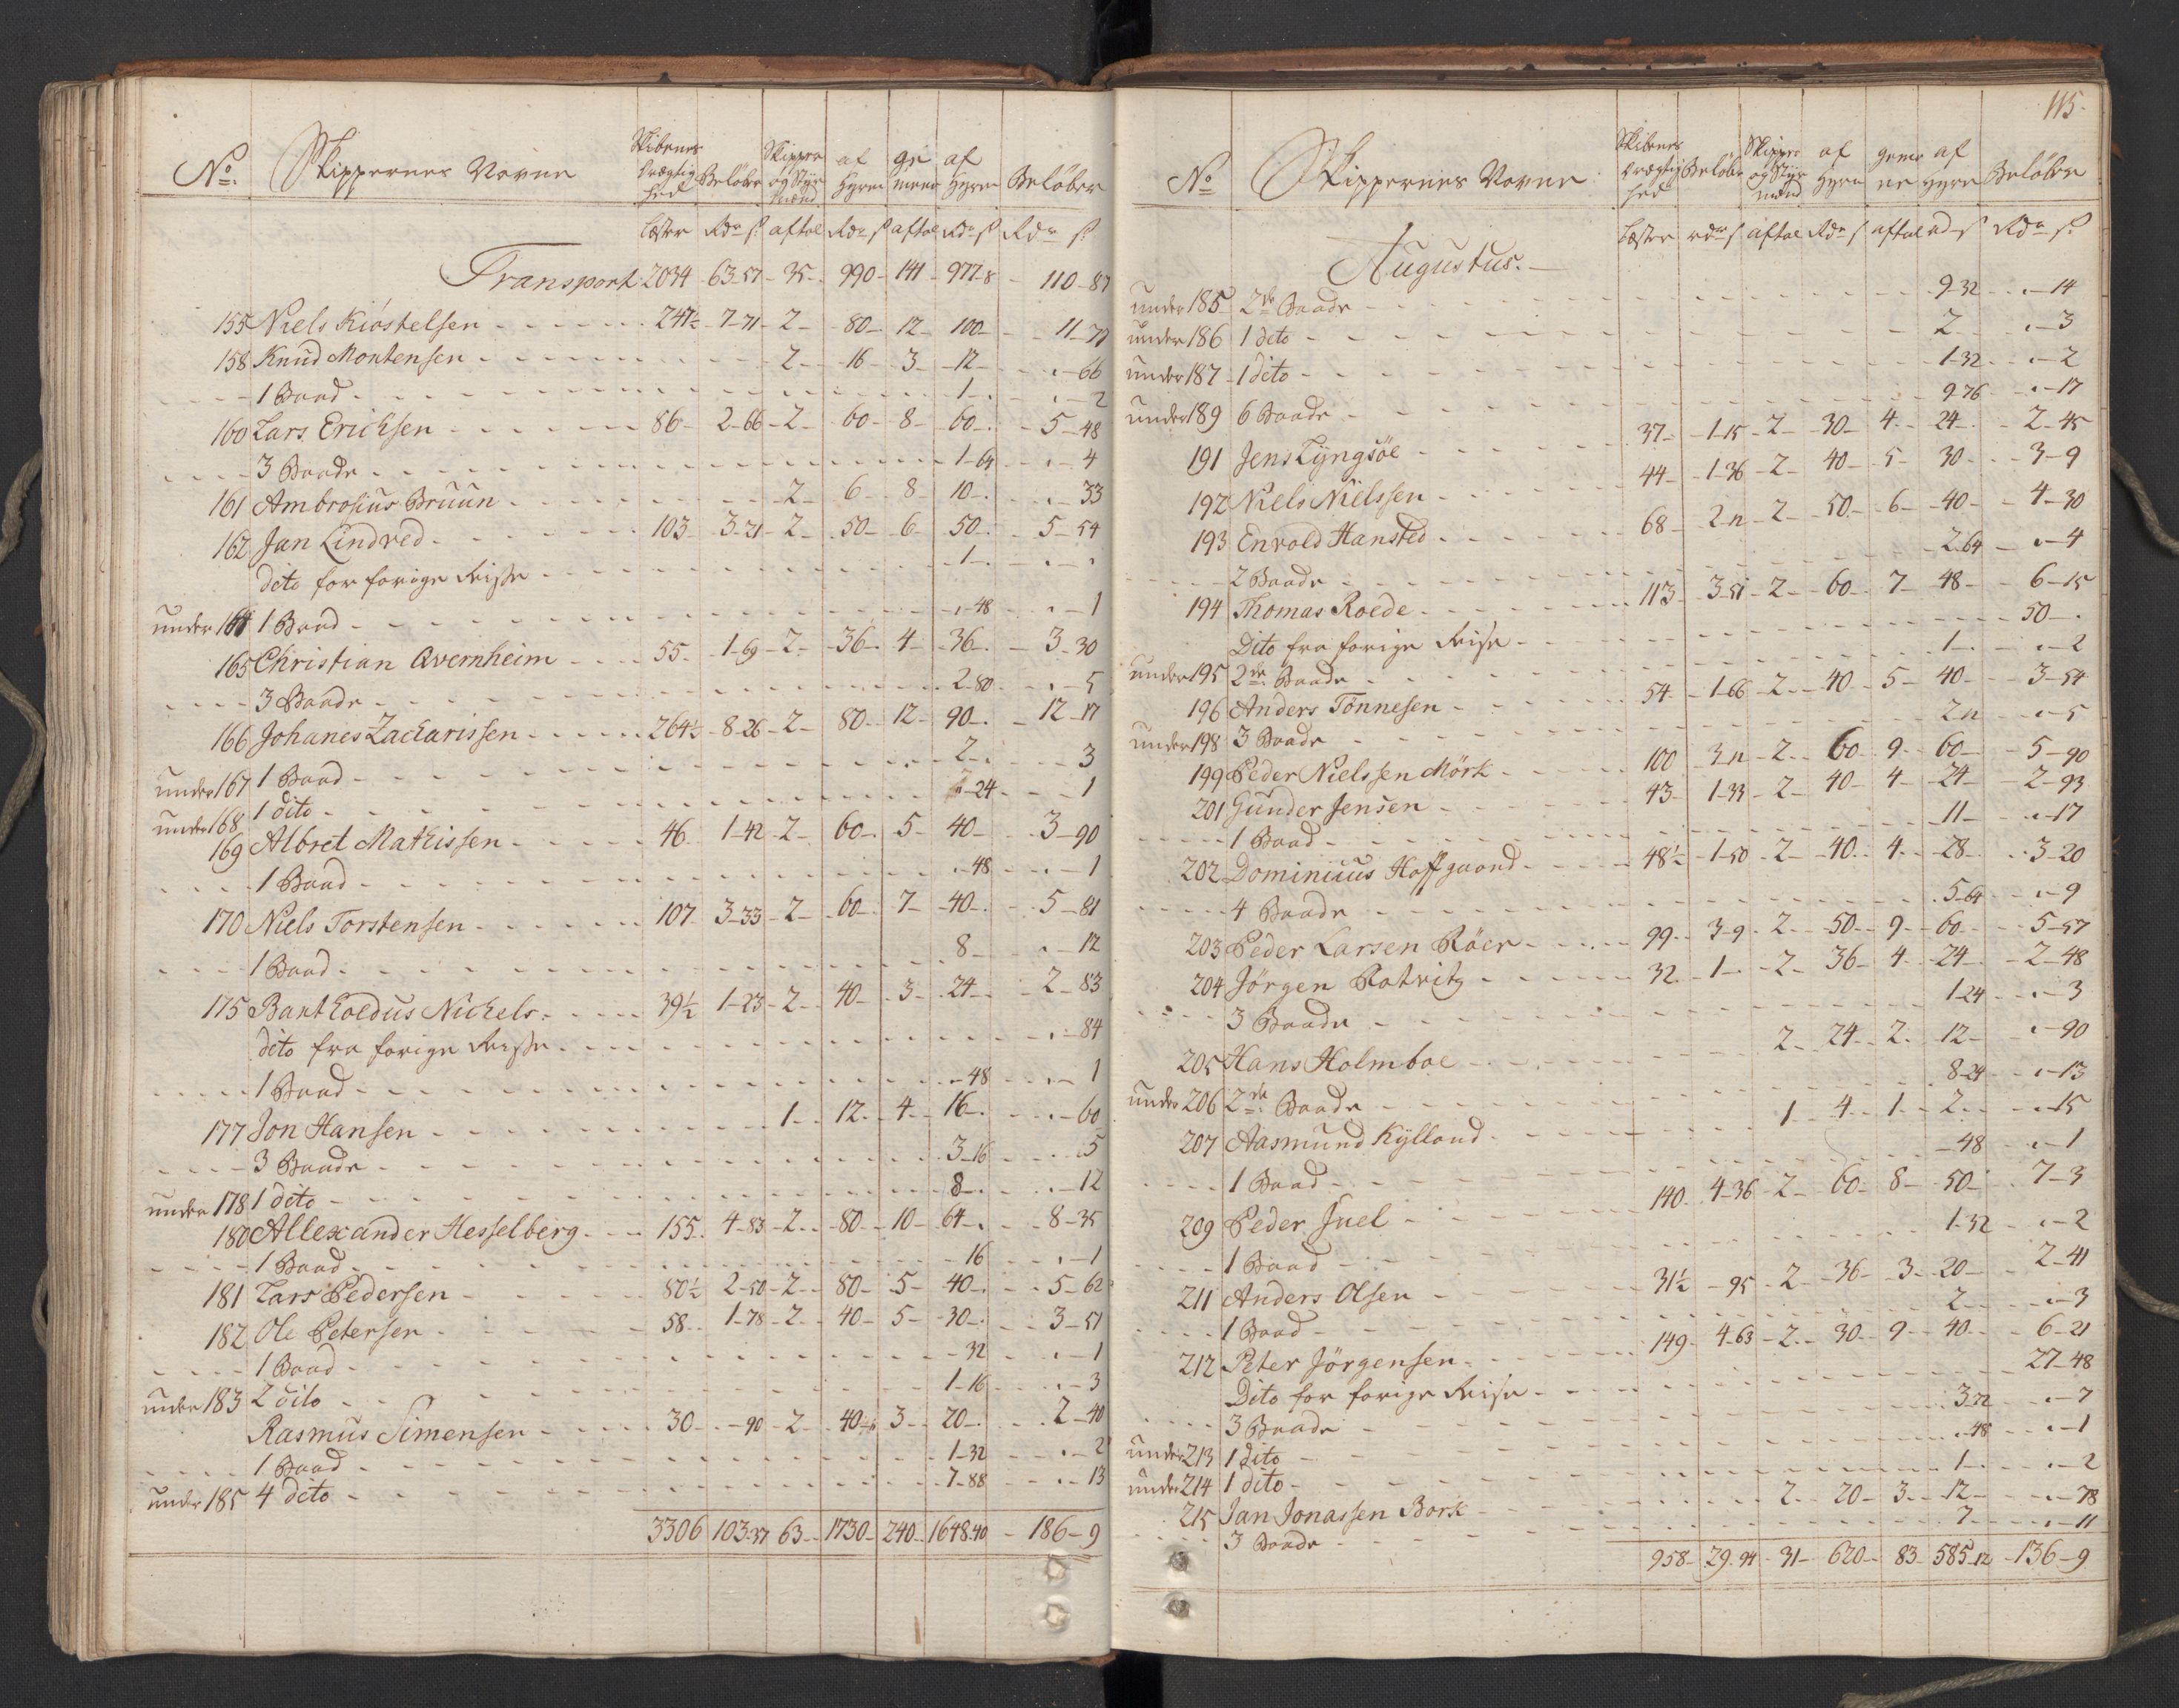 No. Skippernes Navne Skibenes Drægtighed Beløber Skipper og Styrmænd af Hyren gemene af Hyren Beløber
Læster Rdr s. aftal Rdr s aftal Rdr s Rdr s.
Transport 2034 63-57 - 35 - 990 - 141 - 977-8 - 110-87
155 Niels Kiøstelsen - 247½ - 7-71 - 2 - 80 - 12 - 100 - 11-77
158 Knud Montensen - 2 - 16 - 3 - 12 - 66
1 Baad - 1 - 2
160 Lars Erichsen - 86 - 2-66 - 2 - 60 - 8 - 60 - 5-48
3 Baade - 1-64 - 4
161 Ambrosius Bruun - 2 - 6 - 8 - 10 - 33
162 Jan Lindved - 103 - 3-21 - 2 - 50 - 6 - 50 - 5-54
dito for forige Reise - 1
under 164 1 Baad - 48 - 1
165 Christian Qvernheim - 55 - 1-69 - 2 - 36 - 4 - 36 - 3-30
3 Baade - 2-80 - 5
166 Johanes Zacharissen - 264½ - 8-26 - 2 - 80 - 12 - 90 - 12-17
under 167 1 Baad - 2 - 3
under 168 1 dito - 24 - 1
169 Albret Mathissen - 46 - 1-42 - 2 - 60 - 5 - 40 - 3-90
1 Baad - 48 - 1
170 Niels Torstensen - 107 - 3-33 - 2 - 60 - 7 - 40 - 5-81
1 Baad - 8 - 12
175 Bantholdus Nichels - 39½ - 1-23 - 2 - 40 - 3 - 24 - 2-83
dito fra forige Reise - 84
1 Baad - 48 - 1
177 Jon Hansen - 1 - 12 - 4 - 16 - 60
3 Baade - 3-16 - 5
under 178 1 dito - 8 - 12
180 Allexander Hesselberg - 155 - 4-83 - 2 - 80 - 10 - 64 - 8-35
1 Baad - 16 - 1
181 Lars Pedersen - 80½ - 2-50 - 2 - 80 - 5 - 40 - 5-62
182 Ole Petersen - 58 - 1-78 - 2 - 40 - 5 - 30 - 3-51
1 Baad - 32 - 1
under 183 2 dito - 1-16 - 3
Rasmus Simensen - 30 - 90 - 2 - 40 - 3 - 20 - 2-40
1 Baad - 1-32 - 2
under 185 4 dito - 7-88 - 13
3306 103-37 63 - 1730 - 240 - 1648-40 - 186-9
115
No Skippernes Navne Skibenes drægtighed Beløber Skipper og Styrmænd af Hyre gemene af Hyre Beløber
Læster rdr s aftal Rdr s aftal rd s Rdr s.
Augustus.
under 185 2de Baade - 9-32 - 14
under 186 1 dito - 2 - 3
under 187 1 dito - 1-32 - 2
under 189 6 Baade - 9-76 - 17
191 Jens Lyngsöe - 37 - 1-15 - 2 - 30 - 4 - 24 - 2-45
192 Niels Nielssen - 44 - 1-36 - 2 - 40 - 5 - 30 - 3-9
193 Envold Hansted - 68 - 2-12 - 2 - 50 - 6 - 40 - 4-30
2 Baade - 2-64 - 4
194 Thomas Roede - 113 - 3-51 - 2 - 60 - 7 - 48 - 6-15
Dito fra forige Reise - 50
under 195 2de Baade - 1 - 2
196 Anders Tönnesen - 54 - 1-66 - 2 - 40 - 5 - 40 - 3-54
under 198 3 Baade - 2-72 - 5
199 Peder Nielssen Mörk - 100 - 3-12 - 2 - 60 - 9 - 60 - 5-90
201 Gunder Jensen - 43 - 1-33 - 2 - 40 - 4 - 24 - 2-93
1 Baad - 11 - 17
202 Dominicus Hoffgaard - 48½ - 1-50 - 2 - 40 - 4 - 28 - 3-20
4 Baade - 5-64 - 9
203 Peder Larsen Röer - 99 - 3-9 - 2 - 50 - 9 - 60 - 5-57
204 Jörgen Rotvitg - 32 - 1 - 2 - 36 - 4 - 24 - 2-48
3 Baade - 1-24 - 3
205 Hans Holmboe - 2 - 24 - 2 - 12 - 90
under 206 2de Baade - 8-24 - 13
207 Aasmund Kylland - 1 - 4 - 1 - 2 - 15
1 Baad - 48 - 1
209 Peder Juel - 140 - 4-36 - 2 - 60 - 8 - 50 - 7-3
1 Baad - 1-32 - 2
211 Anders Olsen - 31½ - 95 - 2 - 36 - 3 - 20 - 2-41
1 Baad - 2 - 3
212 Peter Jörgensen - 149 - 4-63 - 2 - 30 - 9 - 40 - 6-21
Dito for forige Reise - 27-48
3 Baade - 3-72 - 7
under 213 1 dito - 48 - 1
under 214 1 dito - 1 - 2
215 Jan Jonassen Bork - 2 - 20 - 3 - 12 - 78
3 Baade - 7 - 11
958 - 29-94 - 31 - 620 - 83 - 585-12 - 136-9